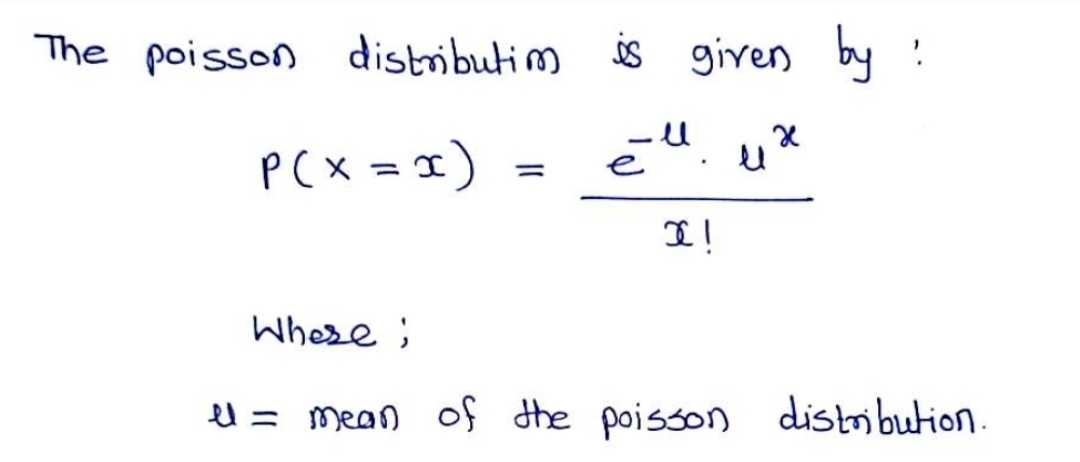 The poisson distribution is given by :
P(X = x) = e^-μ . μ^x / x!
Where ;
μ = mean of the poisson distribution.